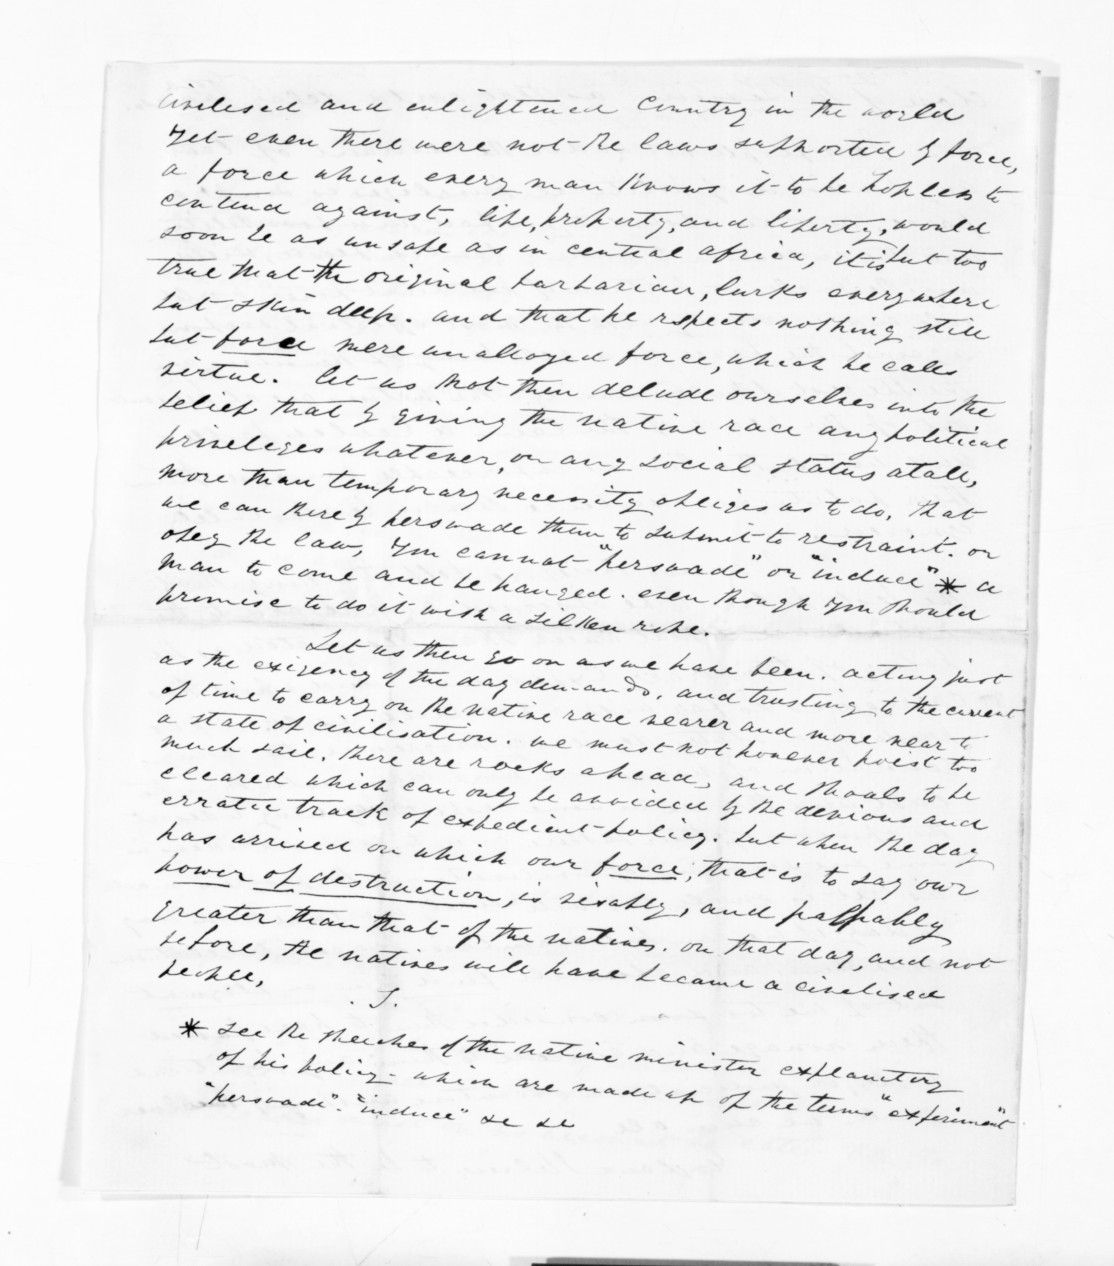 civilised and enlightened country in the world
yet even there were not the laws supported by force,
a force which every man knows it to be hopless to
contend against, life, property, and liberty, would
soon be as unsafe as in central africa, it is but too
true that the original barbarian, lurks everywhere
but skin deep. and that he respects nothing still
but force mere unalloyed force, which he calls
virtue. let us not then delude ourselves into the
belief that by giving the native race any political
priveleges whatever, or any social status atall,
more than temporary necessity obliges us to do, that
we can thereby perswade them to submit to restraint. or
obey the law, you cannot "perswade" or "induce" * a
man to come and be hanged. even though you should
promise to do it with a silken rope.
Let us then go on as we have been. acting just
as the exigency of the day demands. and trusting to the current
of time to carry on the native race nearer and more near to
a state of civilisation. we must not however hoist too
much sail. there are rocks ahead, and shoals to be
cleared which can only be avoided by the devious and
erratic track of expedient policy. but when the day
has arrived on which our force; that is to say our
power of destruction, is visably, and palpably
greater than that of the natives. on that day, and not
before, the natives will have became a civilised
people,
* see the speeches of the native minister explanetory
of his policy which are made up of the terms "experiment"
"perswade". "induce" &c &c